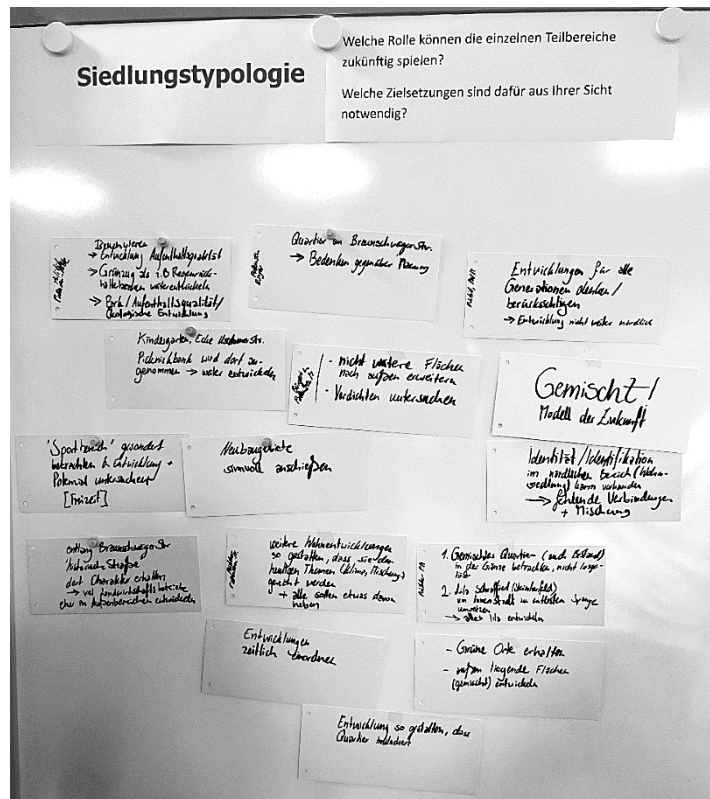 Siedlungstypologie
Welche Rolle können die einzelnen Teilbereiche
zukünftig spielen?
Welche Zielsetzungen sind dafür aus Ihrer Sicht
notwendig?
Bruchwiesen
→ Entwicklung Aufenthaltsqualität
→ Grünzug als z.B Regenrück-
haltebecken weiterentwickeln
→ Park/Aufenthaltsqualität/
ökologische Entwicklung
Quartier an Braunschweiger Str.
→ Bedenken gegenüber Planung
Entwicklungen für alle
Generationen denken/
berücksichtigen
→ Entwicklung nicht weiter nördlich
Kindergarten, Ecke
Picknickbank wird dort an-
genommen → weiter entwickeln
- nicht weitere Flächen
nach außen erweitern
- Verdichten untersuchen
Gemischt/
Modell der Zukunft
"Sportbereich" gesondert
betrachten & Entwicklung +
Potenzial untersuchen
[Freizeit]
Neubaugebiete
sinnvoll anschließen
Identität/Identifikation
im nördlichen Bereich (Wohn-
siedlung) kaum vorhanden
→ fehlende Verbindungen
+ Mischung
entlang Braunschweiger Str
Straße
dort Charakter erhalten
→ viel landwirtschafts betriebe
eher im Außenbereichen entwickeln
weitere Wohnentwicklungen
so gestalten, dass sie den
heutigen Themen (Klima, Mischung)
gerecht werden
+ alle sollen etwas davon
haben
1. Gemischtes Quartier (auch Bestand)
in der Gänze betrachten, nicht losge-
löst
2.
umsetzen
→ alles lila entwickeln
Entwicklungen
zeitlich einordnen
- Grüne Orte erhalten
- außen liegende Flächen
(gemischt) entwickeln
Entwicklung so gestalten, dass
Quartier